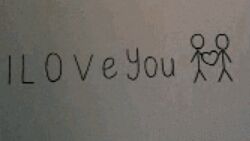 I LOVe you